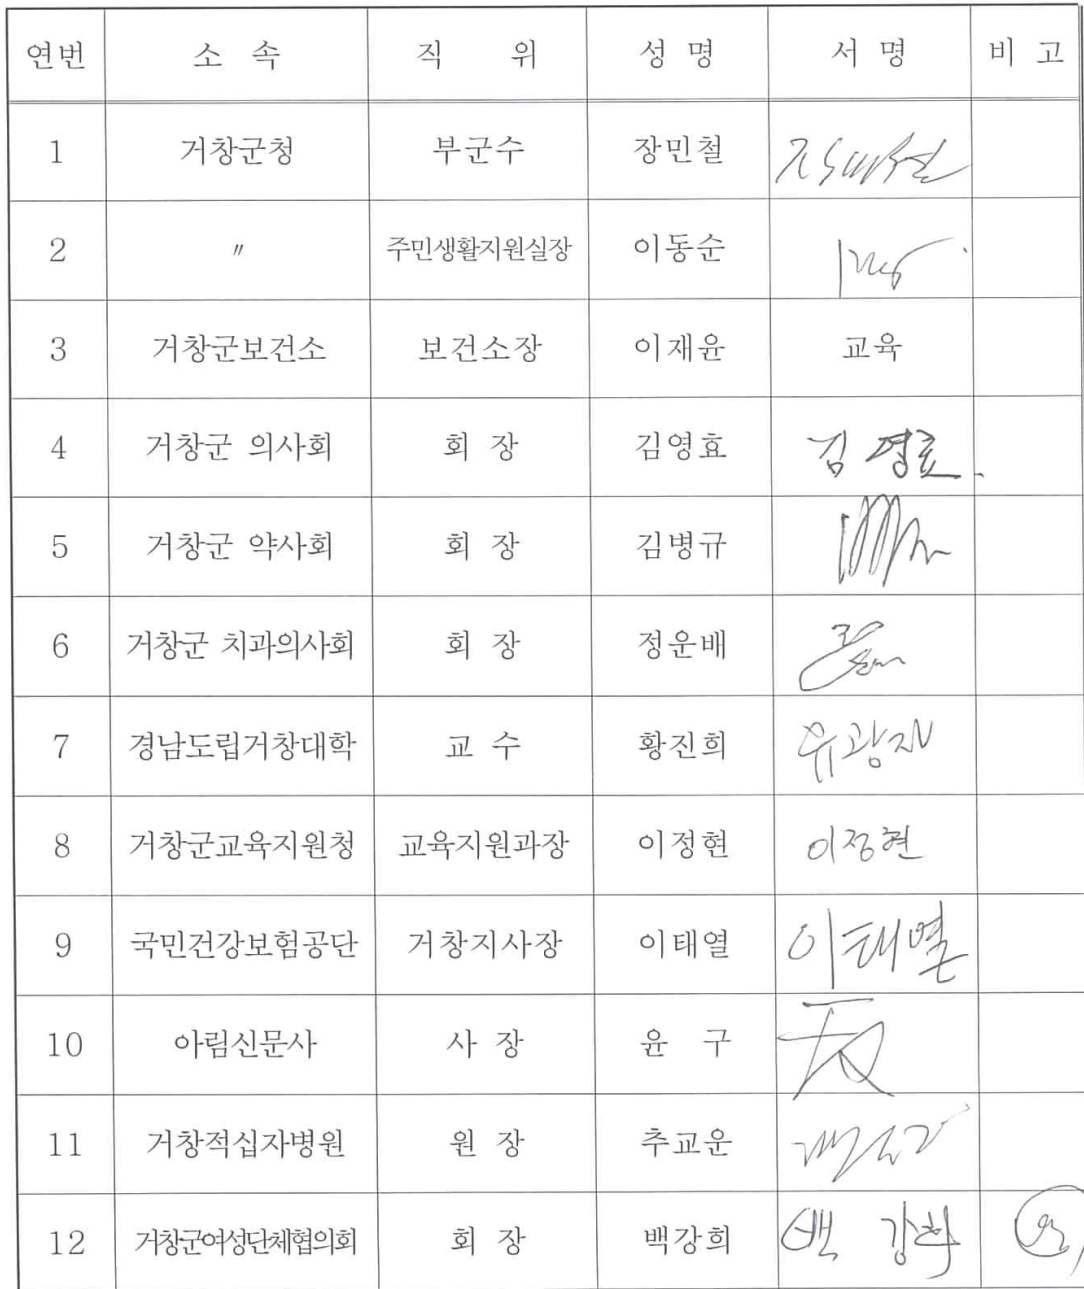 연번 소 속 직 위 성 명 서 명 비 고
1 거창군청 부군수 장민철
2 〃 주민생활지원실장 이동순
3 거창군보건소 보건소장 이재윤 교육
4 거창군 의사회 회 장 김영효 김영효
5 거창군 약사회 회 장 김병규
6 거창군 치과의사회 회 장 정운배
7 경남도립거창대학 교 수 황진희 유광재
8 거창군교육지원청 교육지원과장 이정현 이정현
9 국민건강보험공단 거창지사장 이태열 이태열
10 아림신문사 사 장 윤 구
11 거창적십자병원 원 장 추교운
12 거창군여성단체협의회 회 장 백강희 백강희